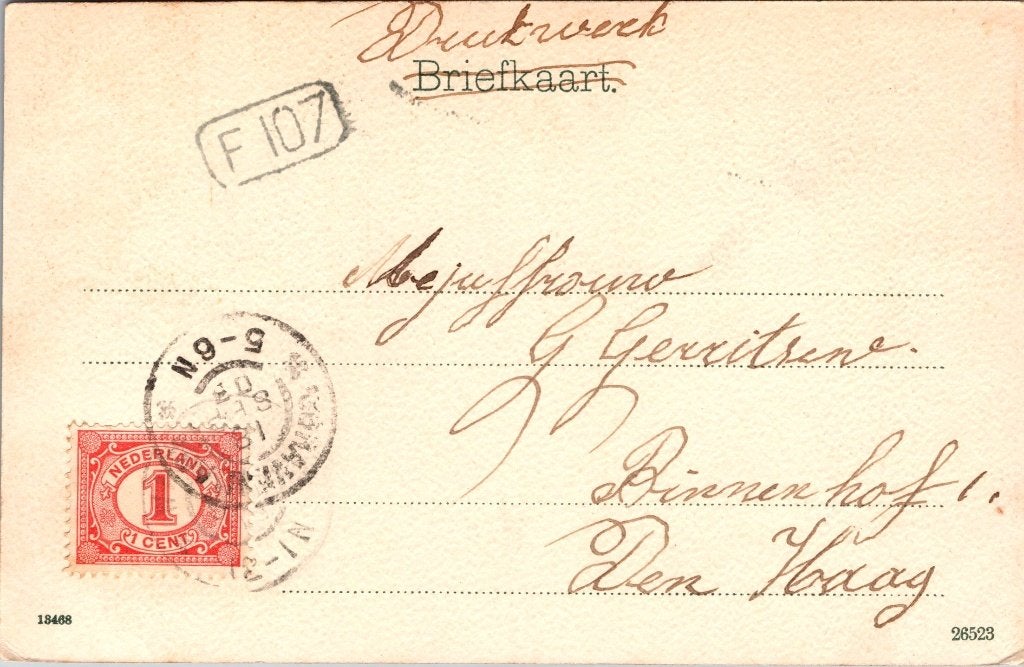 Drukwerk
Briefkaart.
F 107
Mejuffrouw
G Gerritsen.
Binnenhof 1.
Den Haag
5-6N
N1-2
NEDERLAND
1
1 CENT
13468
26523